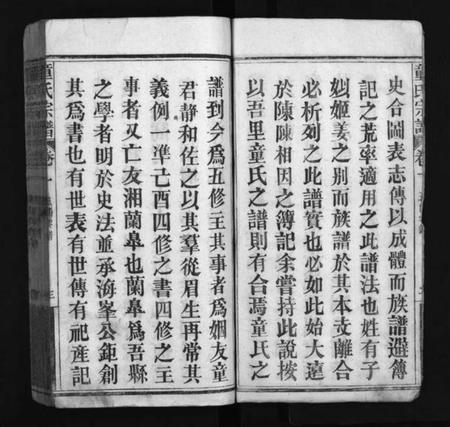 史合圖表志傳以成體而族譜選傳
記之荒率適用之此譜法也姓有子
姒姬姜之别而族譜於其本支離合
必析列之此譜實也必如此始大遠
於陳陳相因之簿記余嘗持此說按
以吾里童氏之譜則有合焉童氏之
譜到今爲五修主其事者爲姻友童
君靜和佐之以其羣從眉生再常其
義例一準己酉四修之書四修之主
事者又亡友湘蘭皋也蘭皋爲吾縣
之學者明於史法並承海峯公鉅創
其爲書也有世表有世傳有祀產記
童氏宗譜
卷一
三
童氏宗譜
卷一